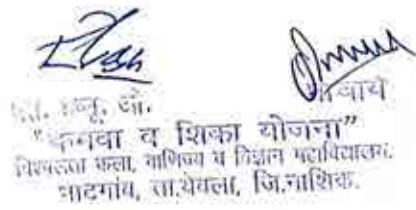 प्राचार्य
"कमवा व शिका योजना"
विश्वलता कला, वाणिज्य व विज्ञान महाविद्यालय,
भाटगांव, ता.येवला, जि.नाशिक.